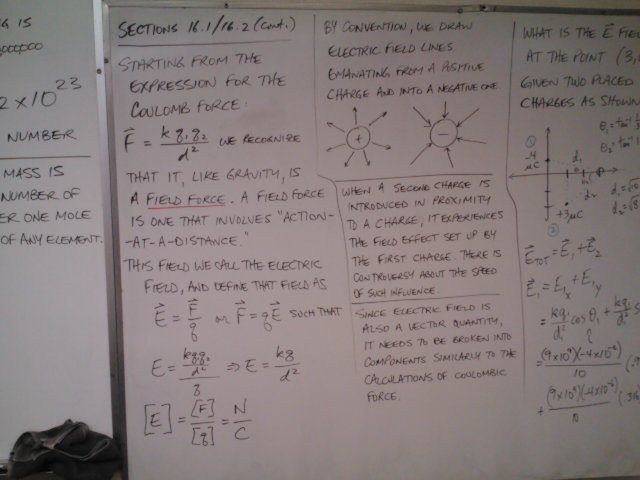 G IS
2 x 10^23
NUMBER
MASS IS
NUMBER OF
ER ONE MOLE
OF ANY ELEMENT.
SECTIONS 16.1/16.2 (CONT.)
STARTING FROM THE
EXPRESSION FOR THE
COULOMB FORCE:
F⃗ = k q₁ q₂ / d² WE RECOGNIZE
THAT IT, LIKE GRAVITY, IS
A FIELD FORCE. A FIELD FORCE
IS ONE THAT INVOLVES "ACTION-
-AT-A-DISTANCE."
THIS FIELD WE CALL THE ELECTRIC
FIELD, AND DEFINE THAT FIELD AS
E⃗ = F⃗/q or F⃗ = qE⃗ SUCH THAT
E = (kqq₂/d²)/q ⇒ E = kq/d²
[E] = [F]/[q] = N/C
BY CONVENTION, WE DRAW
ELECTRIC FIELD LINES
EMANATING FROM A POSITIVE
CHARGE AND INTO A NEGATIVE ONE.
+ −
WHEN A SECOND CHARGE IS
INTRODUCED IN PROXIMITY
TO A CHARGE, IT EXPERIENCES
THE FIELD EFFECT SET UP BY
THE FIRST CHARGE. THERE IS
CONTROVERSY ABOUT THE SPEED
OF SUCH INFLUENCE.
SINCE ELECTRIC FIELD IS
ALSO A VECTOR QUANTITY,
IT NEEDS TO BE BROKEN INTO
COMPONENTS SIMILARLY TO THE
CALCULATIONS OF COULOMBIC
FORCE.
WHAT IS THE E⃗ FIEL
AT THE POINT (3,
GIVEN TWO PLACED
CHARGES AS SHOWN
① θ₁ = tan⁻¹
-4 μC d₁ θ₂ = tan⁻¹
d₂ d₁ = √
+3μC d₂ = √8
②
E⃗TOT = E⃗₁ + E⃗₂
E⃗₁ = E₁x + E₁y
= kq₁/d² cos θ₁ + kq₁/d² s
= (9x10⁹)(-4x10⁻⁶)/10 (.9
+ (9x10⁹)(-4x10⁻⁶)/10 (.316